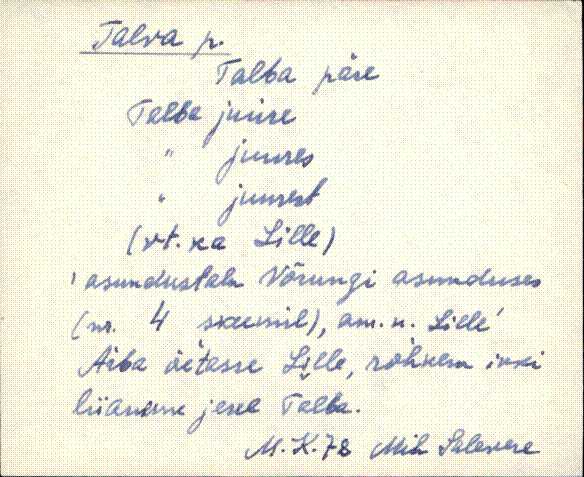 Talva p.
Talba päre
Talba juure
" juures
" juurest
(vt. ka Lille)
'asundustalu Võrungi asunduses
(nr. 4 skeemil), am. n. Lille'
Aiba öetasse Lille, rohkem ikki
liianime jerel Talba.
M. K. 78 Mih Salevere